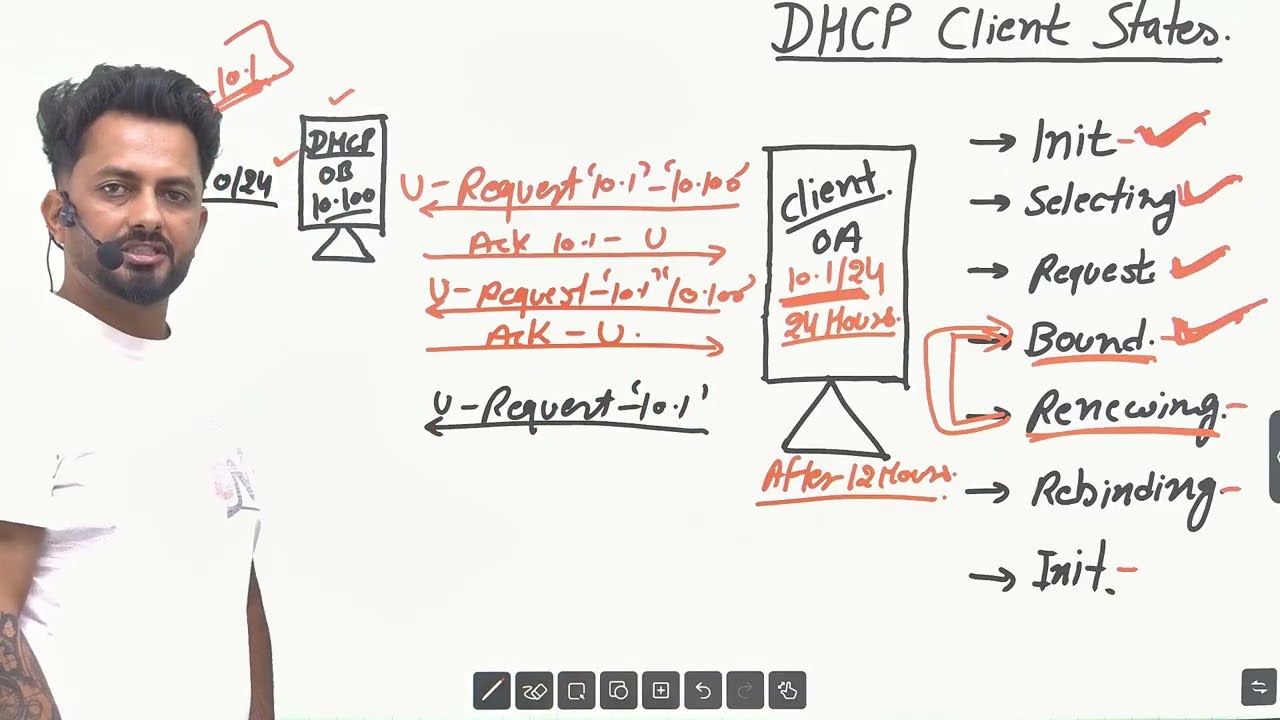 DHCP Client States.
10.1
DHCP
0B
10.100
0/24
U-Request '10.1'-'10.100'
Ack 10.1- U
U-Request-'10.1' '10.100'
Ack - U.
U-Request-'10.1'
client.
0A
10.1/24
24 Hours.
After 12 Hours.
→ Init-
→ Selecting
→ Request.
→ Bound.-
→ Renewing.-
→ Rebinding-
→ Init.-